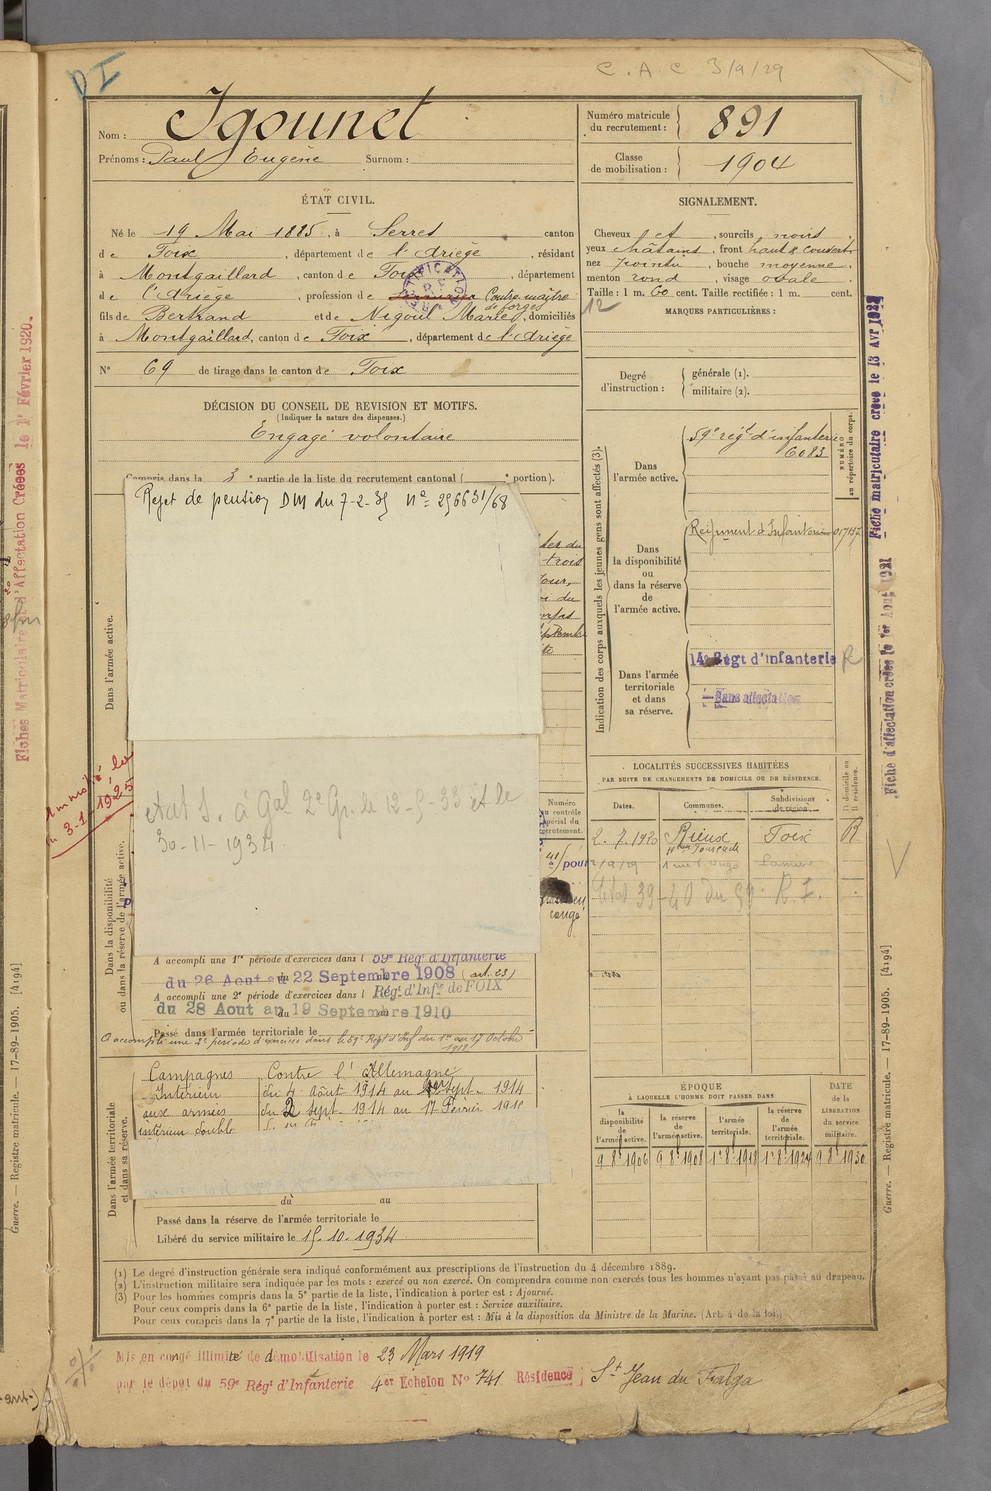 DI
C. A. C 3/9/29
Nom : Igounet
Prénoms : Paul Eugène Surnom :
Numéro matricule du recrutement : 891
Classe de mobilisation : 1904
ÉTAT CIVIL.
Né le 19 Mai 1885, à Serres canton
de Foix, département de l'Ariège, résidant
à Montgaillard, canton de Foix, département
de l'Ariège, profession de Contre-maître de forges
fils de Bertrand et de Nigoul Marie, domiciliés
à Montgaillard, canton de Foix, département de l'Ariège
N° 69 de tirage dans le canton de Foix
DÉCISION DU CONSEIL DE REVISION ET MOTIFS.
(Indiquer la nature des dispenses.)
Engagé volontaire
Compris dans la 3e partie de la liste du recrutement cantonal ( e portion).
Rejet de pension DM du 7-2-35 N° 296631/68
Dans l'armée active.
Amnistié loi
du 3-1-1925
2e Gr. le 12-9-33 et le
30-11-1934
Dans la disponibilité
ou dans la réserve de l'armée active.
A accompli une 1re période d'exercices dans l 59e Régt d'Infanterie
du 26 Aout au 22 Septembre 1908 (art. 23)
A accompli une 2e période d'exercices dans l Régt d'Infie de FOIX
du 28 Aout au 19 Septembre 1910
Passé dans l'armée territoriale le
A accompli une 2e période d'exercices dans le 59e Régt d'Inf du 1er au 17 Octobre
Campagnes Contre l'Allemagne
Intérieur du 4 Août 1914 au 1er Sept. 1914
aux armées du 2 Sept. 1914 au 17 Février 191
intérieur double
Dans l'armée territoriale
et dans sa réserve.
du au
Passé dans la réserve de l'armée territoriale le
Libéré du service militaire le 15-10-1934
SIGNALEMENT.
Cheveux et, sourcils noirs
yeux châtains, front haut & couvert
nez pointu, bouche moyenne
menton rond, visage ovale
Taille : 1 m. 60 cent. Taille rectifiée : 1 m. cent.
12
MARQUES PARTICULIÈRES :
Degré d'instruction :
générale (1).
militaire (2).
Indication des corps auxquels les jeunes gens sont affectés (3).
NUMÉRO
au répertoire du corps.
Dans
l'armée active.
59e régt d'infanterie
6083
Dans
la disponibilité
ou
dans la réserve
de
l'armée active.
Régiment d'Infanterie
Dans l'armée
territoriale
et dans
sa réserve.
14e Régt d'infanterie R
Sans affectation
Numéro
au contrôle
spécial du
recrutement.
congé
LOCALITÉS SUCCESSIVES HABITÉES
PAR SUITE DE CHANGEMENTS DE DOMICILE OU DE RÉSIDENCE.
Dates. Communes. Subdivisions de région. D. domicile ou R. résidence.
2.7.1920 Rieux Foix R
2/9/29
39-40 du 59 R. I.
ÉPOQUE
À LAQUELLE L'HOMME DOIT PASSER DANS
la disponibilité de l'armée active.
la réserve de l'armée active.
l'armée territoriale.
la réserve de l'armée territoriale.
DATE
de la
LIBÉRATION
du service
militaire.
9 8 1906 9 8 1908 1er 8 1918 1er 8 1924 9 8 1930
(1) Le degré d'instruction générale sera indiqué conformément aux prescriptions de l'instruction du 4 décembre 1889.
(2) L'instruction militaire sera indiquée par les mots : exercé ou non exercé. On comprendra comme non exercés tous les hommes n'ayant pas passé au drapeau.
(3) Pour les hommes compris dans la 5e partie de la liste, l'indication à porter est : Ajourné.
Pour ceux compris dans la 6e partie de la liste, l'indication à porter est : Service auxiliaire.
Pour ceux compris dans la 7e partie de la liste, l'indication à porter est : Mis à la disposition du Ministre de la Marine. (Art. 4 de la loi.)
Mis en congé illimité de démobilisation le 23 Mars 1919
par le dépôt du 59e Régt d'Infanterie 4er Echelon N° 741 Résidence : St Jean du Falga
Fiches Matriculaire et d'Affectation Créées le 1er Février 1920.
Guerre. — Registre matricule. — 17-89-1905. [4194]
Fiche matriculaire créée le 13 Avr 192
Fiche d'affectation créée le 1er Aout 1921
Guerre. — Registre matricule. — 17-89-1905. [4194]